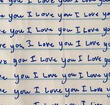 you I Love you I Love
you I Love you I Love
you I Love you I Love
you I Love you I Love
you I Love you I Love
you I Love you I Love
you I Love you I Love